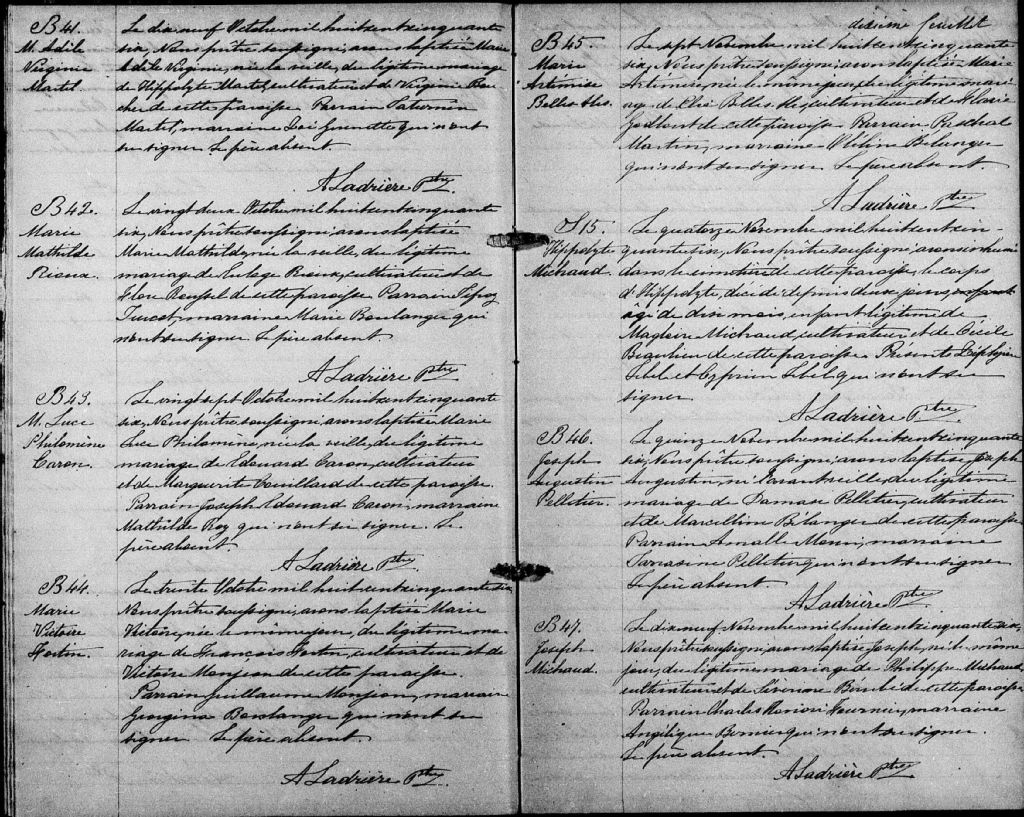 B 41.
M. Adèle
Virginie
Martel
Le dix neuf Octobre mil huit cent cinquante
six, Nous prêtre soussigné, avons baptisé Marie
Adèle Virginie, née la veille, du légitime mariage
de Hippolyte Martel, cultivateur et de Virginie
de cette paroisse Parrain
Martel, marraine qui n'ont
su signer Le père absent.
A Ladrière Ptre
B 42.
Marie
Mathilde
Rioux.
Le vingt deux Octobre mil huit cent cinquante
six, Nous prêtre soussigné, avons baptisé
Marie Mathilde, née la veille, du légitime
mariage de Eulage Rioux, cultivateur et de
Flore Roussel de cette paroisse Parrain
Turcot, marraine Marie Boulanger qui
n'ont su signer Le père absent
A Ladrière Ptre
B 43.
M. Luce
Philomène
Caron.
Le vingt sept Octobre mil huit cent cinquante
six, Nous prêtre soussigné, avons baptisé Marie
Luce Philomène, née la veille, du légitime
mariage de Edouard Caron, cultivateur
et de Marguerite Couillard de cette paroisse.
Parrain Joseph Edouard Caron, marraine
Mathilde Roy qui n'ont su signer. Le
père absent.
A Ladrière Ptre
B 44.
Marie
Victoire
Fortin.
Le trente Octobre mil huit cent cinquante six,
Nous prêtre soussigné, avons baptisé Marie
Victoire, née le même jour, du légitime ma-
riage de François Fortin, cultivateur et de
Victoire Monjeon de cette paroisse.
Parrain Guillaume Monjeon, marraine
Georgina Boulanger qui n'ont su
signer Le père absent.
A Ladrière Ptre
dixième feuillet
B 45.
Marie
Artémise
Belles-Isles.
Le sept Novembre mil huit cent cinquante
six, Nous prêtre soussigné, avons baptisé Marie
Artémise, née le même jour, du légitime mari-
age de Elie Belles-Iles, cultivateur et de
Godbout de cette paroisse Parrain Paschal
Martin, marraine Bélanger
qui n'ont su signer Le père absent.
A Ladrière Ptre
S 15.
Hippolyte
Michaud.
Le quatorze Novembre mil huit cent cin-
quante six, Nous prêtre soussigné, avons inhumé
dans le cimetière de cette paroisse, le corps
d'Hippolyte, décédé depuis deux jours, enfant
âgé de dix mois, enfant légitime de
Magloire Michaud, cultivateur et de Cécile
Beaulieu de cette paroisse Présents Zéphyrin
Lebel et Cyprien Lebel qui n'ont su
signer.
A Ladrière Ptre
B 46.
Joseph
Augustin
Pelletier.
Le quinze Novembre mil huit cent cinquante
six, Nous prêtre soussigné, avons baptisé Joseph
Augustin, né l'avant veille, du légitime
mariage de Damase Pelletier, cultivateur
et de Marcelline Bélanger de cette paroisse
Parrain Morin, marraine
Tarrasine Pelletier qui n'ont su signer
Le père absent
A Ladrière Ptre
B 47.
Joseph
Michaud.
Le dix neuf Novembre mil huit cent cinquante six,
Nous prêtre soussigné, avons baptisé Joseph, né le même
jour, du légitime mariage de Philippe Michaud,
cultivateur et de Séverine Bérubé de cette paroisse
Parrain Charles Honoré Fournier, marraine
Angélique Bernier qui n'ont su signer.
Le père absent.
A Ladrière Ptre